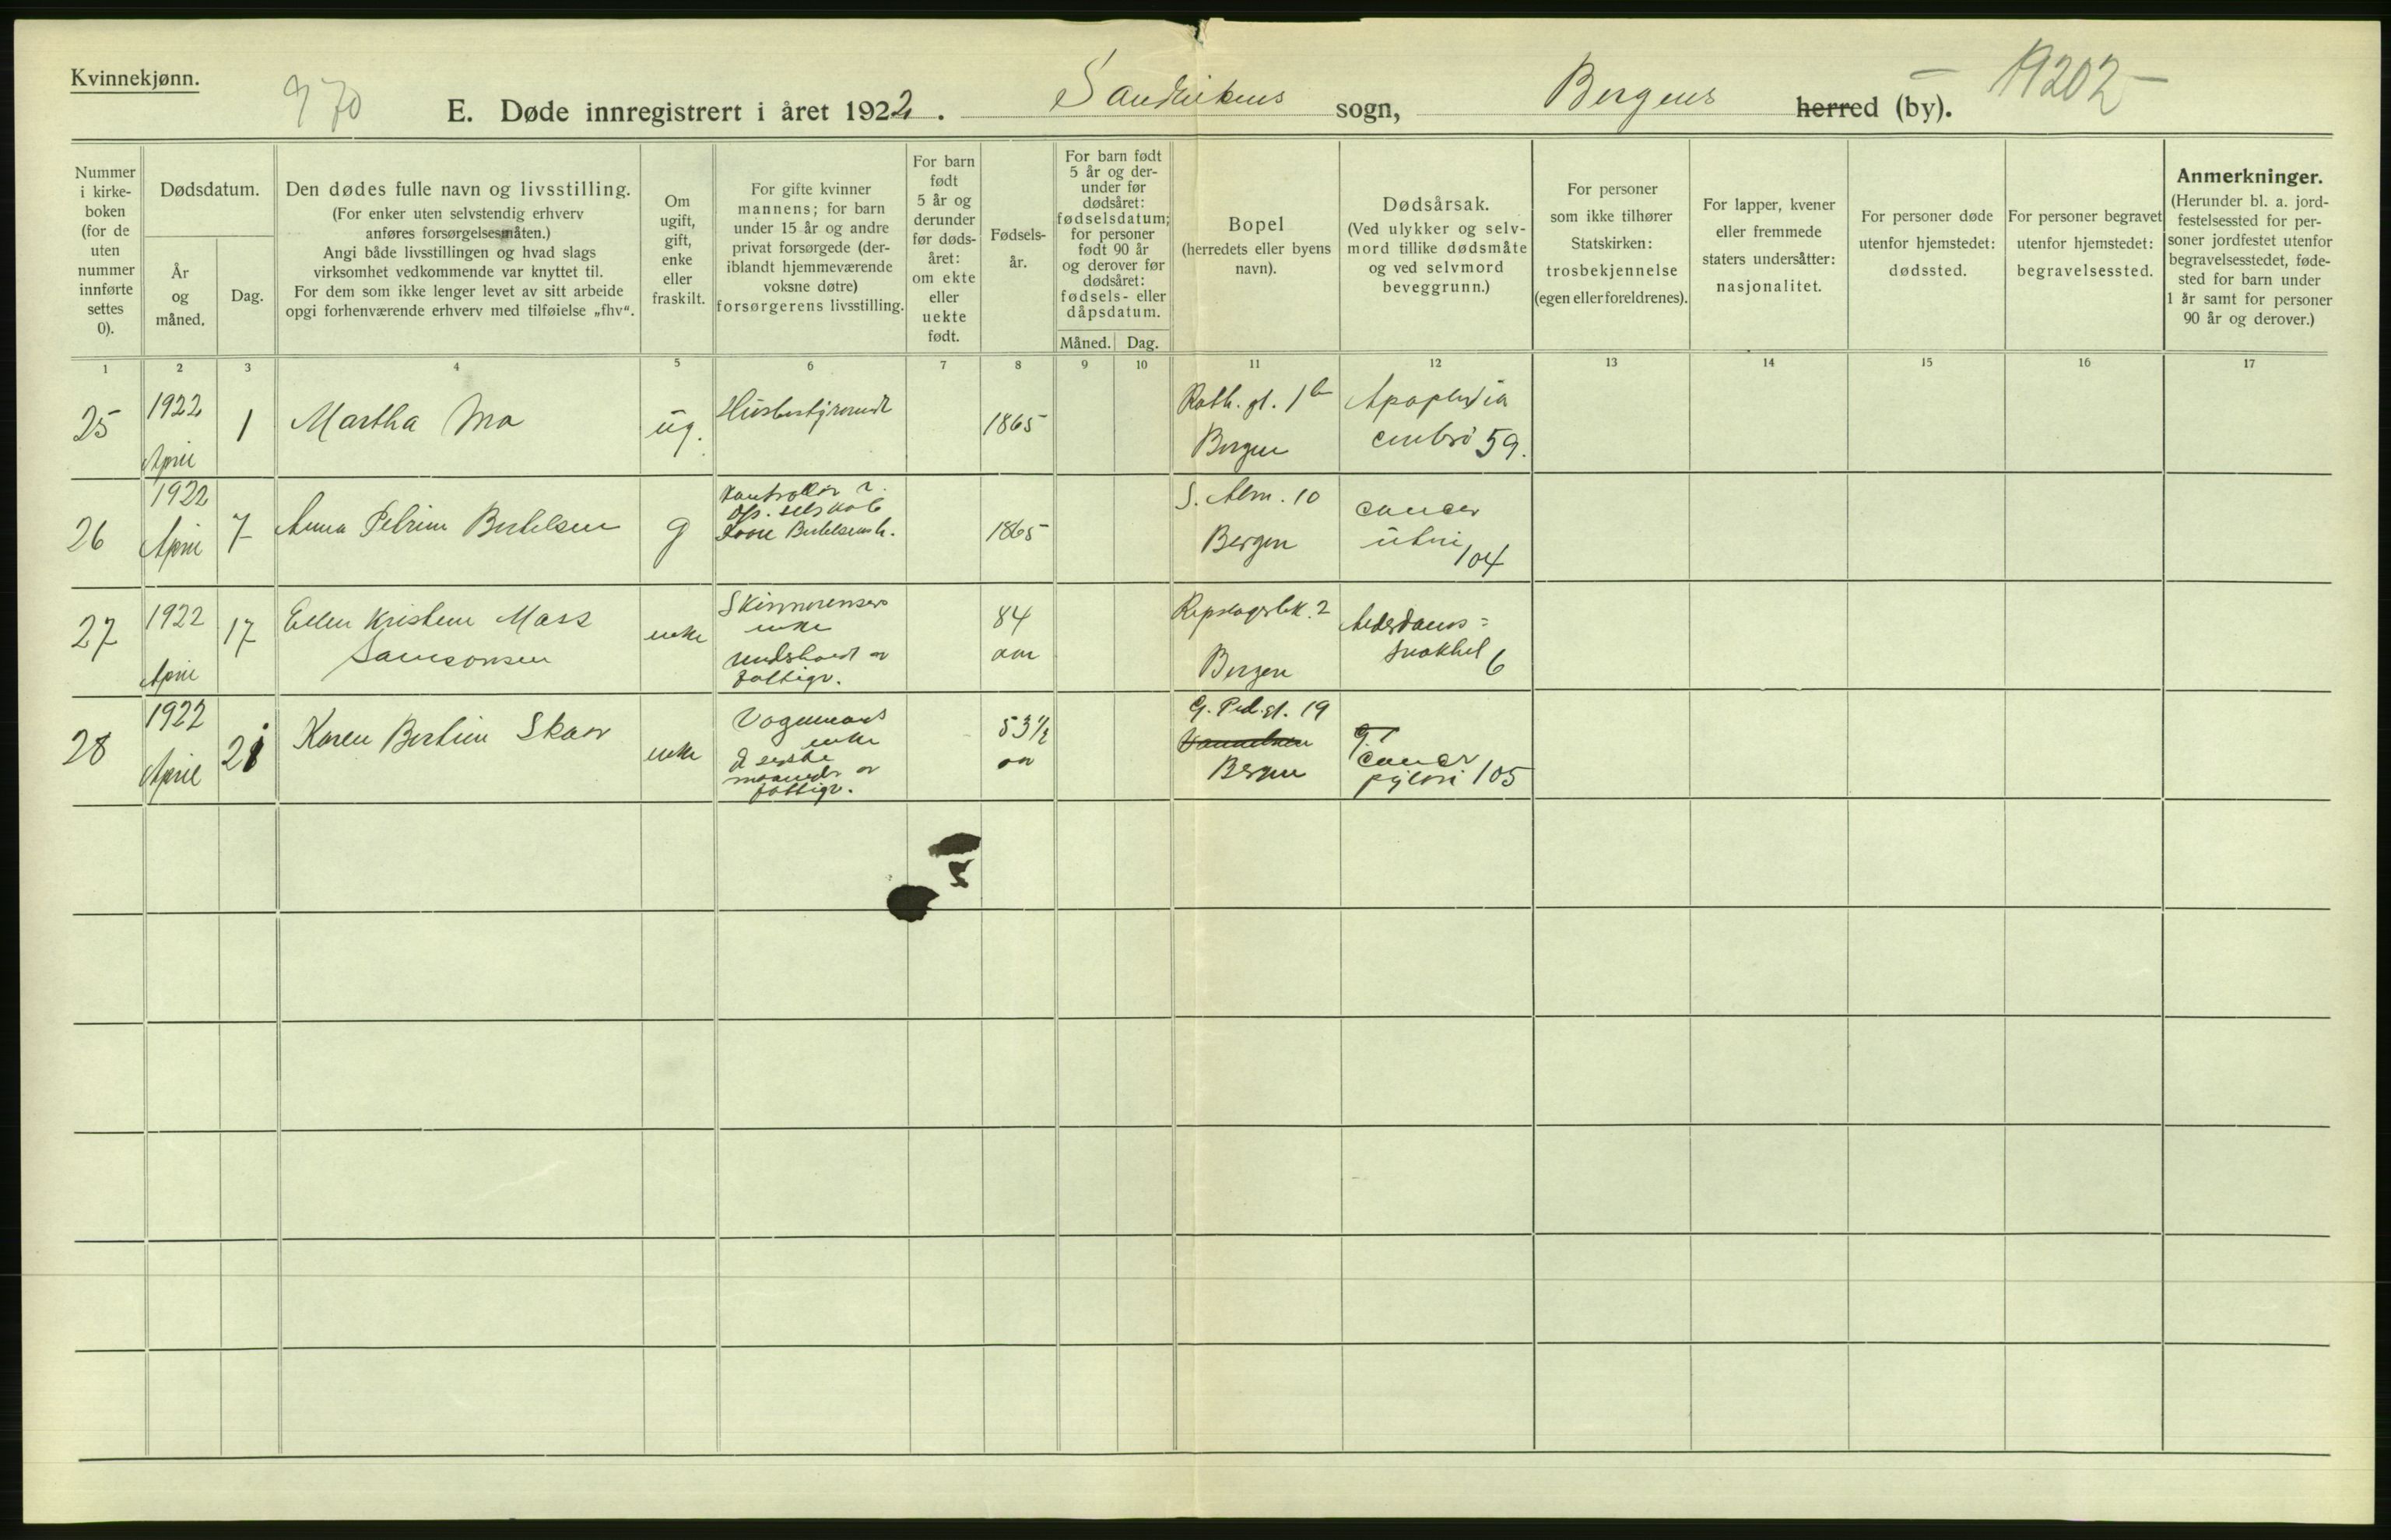 Kvinnekjønn.
970
E. Døde innregistrert i året 1922. Sandvikens sogn, Bergens herred (by). 1202
Nummer i kirke-boken (for de uten nummer innførte settes 0).
Dødsdatum.
År og måned.
Dag.
Den dødes fulle navn og livsstilling.
(For enker uten selvstendig erhverv
anføres forsørgelsesmåten.)
Angi både livsstillingen og hvad slags
virksomhet vedkommende var knyttet til.
For dem som ikke lenger levet av sitt arbeide
opgi forhenværende erhverv med tilføielse „fhv“.
Om
ugift,
gift,
enke
eller
fraskilt.
For gifte kvinner
mannens; for barn
under 15 år og andre
privat forsørgede (der-
iblandt hjemmeværende
voksne døtre)
forsørgerens livsstilling.
For barn
født
5 år og
derunder
før døds-
året:
om ekte
eller
uekte
født.
Fødsels-
år.
For barn født
5 år og der-
under før
dødsåret:
fødselsdatum;
for personer
født 90 år
og derover før
dødsåret:
fødsels- eller
dåpsdatum.
Måned. Dag.
Bopel
(herredets eller byens
navn).
Dødsårsak.
(Ved ulykker og selv-
mord tillike dødsmåte
og ved selvmord
beveggrunn.)
For personer
som ikke tilhører
Statskirken:
trosbekjennelse
(egen eller foreldrenes).
For lapper, kvener
eller fremmede
staters undersåtter:
nasjonalitet.
For personer døde
utenfor hjemstedet:
dødssted.
For personer begravet
utenfor hjemstedet:
begravelsessted.
Anmerkninger.
(Herunder bl. a. jord-
festelsessted for per-
soner jordfestet utenfor
begravelsesstedet, føde-
sted for barn under
1 år samt for personer
90 år og derover.)
1 2 3 4 5 6 7 8 9 10 11 12 13 14 15 16 17
25 1922 April 1 Martha Mo ug. Husbestyrerinde 1865 Roth. gt. 1b Bergen Apoplexia cerebri 59.
26 1922 April 7 Anna Petrine Bertelsen g Kontrollør Bertelsens h. 1865 S. Alm. 10 Bergen cancer uteri 104
27 1922 April 17 Ellen Kristine Mass Samsonsen enke enke underholdt av fattigv. 84 aar Repslagerbk. 2 Bergen Alderdoms= svakhet 6
28 1922 April 21 Karen Bertine Skaar enke Vognmands enke d sidste maaneder av fattigv. 53 1/2 aar G. Ped. gt. 19 Bergen cancer pylori 105